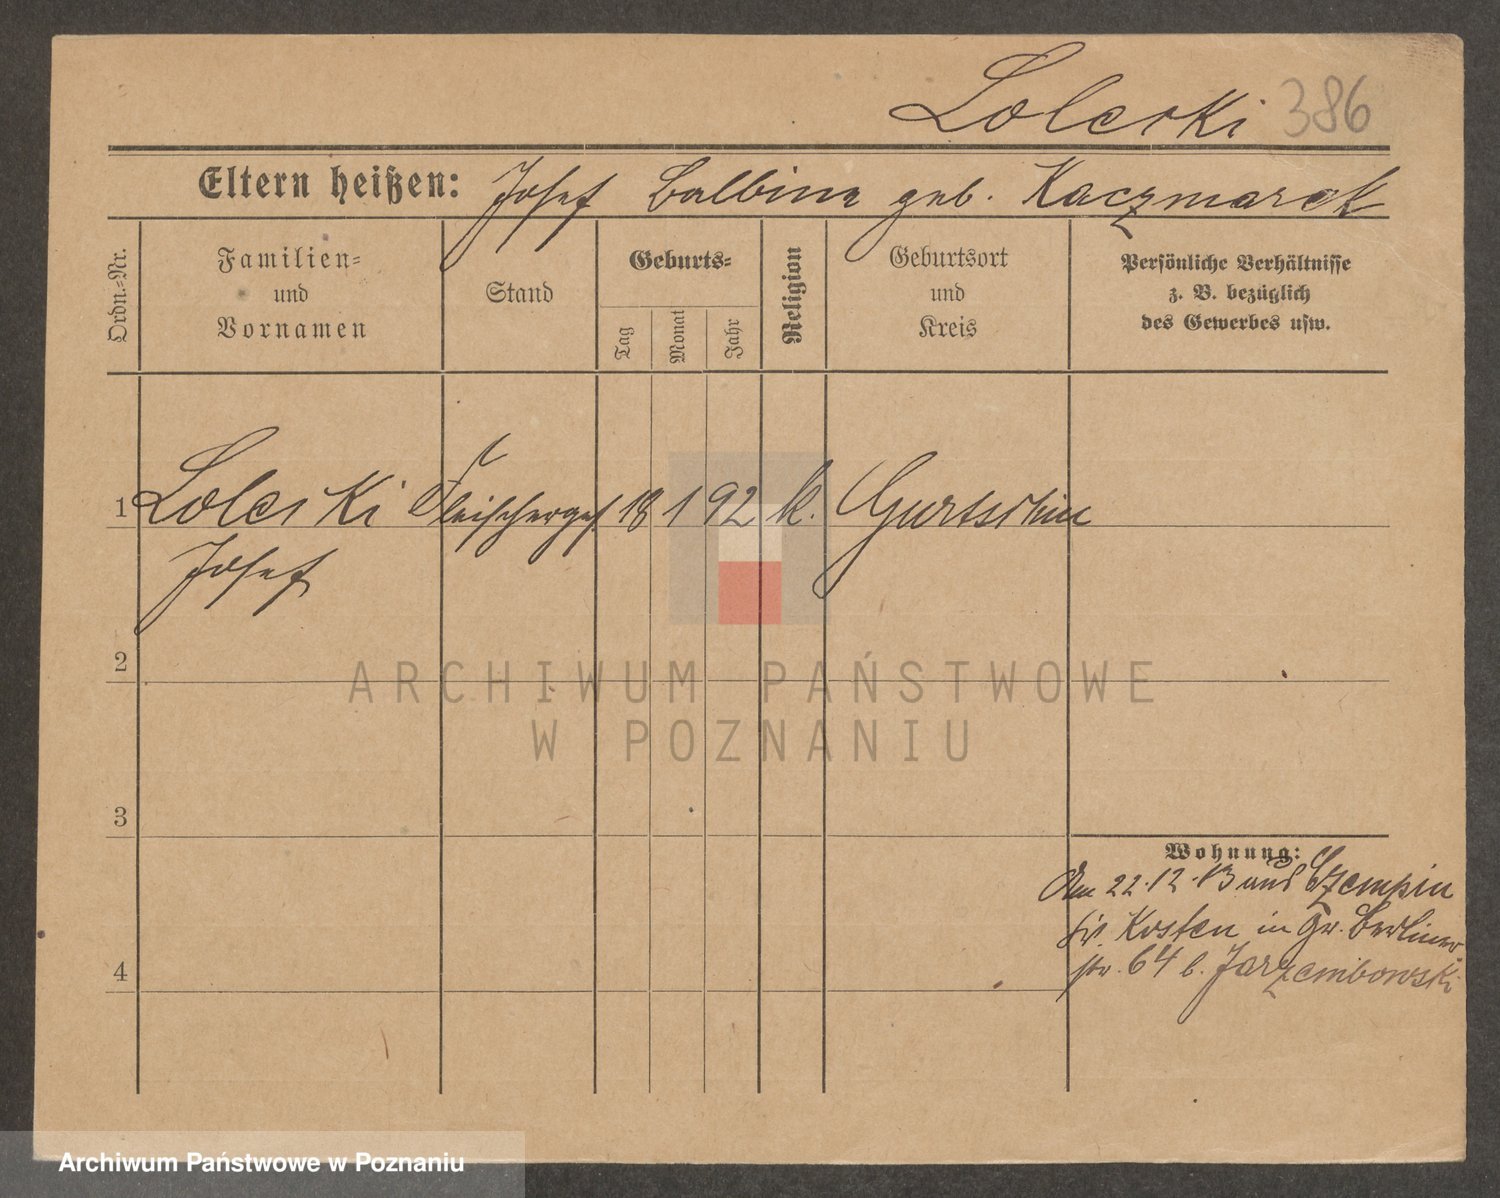 Lolcski 386
Eltern heißen: Josef Balbina geb. Kaczmarek
Ordn.=Nr.
Familien=
und
Vornamen
Stand
Geburts=
Tag
Monat
Jahr
Religion
Geburtsort
und
Kreis
Persönliche Verhältnisse
z. B. bezüglich
des Gewerbes usw.
1 Fleischerges. 18 1 92 k. Gurtschin
Josef
2
ARCHIWUM PAŃSTWOWE
W POZNANIU
3
Wohnung:
Am 22.12.13 aus Czempin
Kosten in Gr. Berliner
str. 64 b. Jarzembowski
4
Archiwum Państwowe w Poznaniu